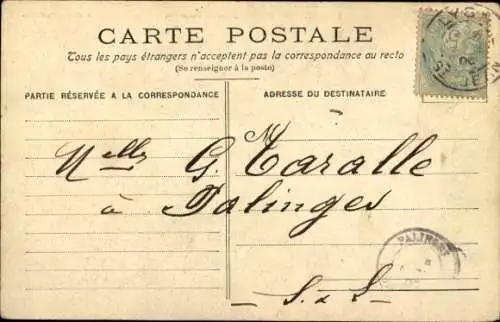 CARTE POSTALE
Tous les pays étrangers n'acceptent pas la correspondance au recto
(Se renseigner à la poste)
PARTIE RÉSERVÉE A LA CORRESPONDANCE
ADRESSE DU DESTINATAIRE
M
Nelly G. Taralle
à Palinges
PALINGES
S. & L.